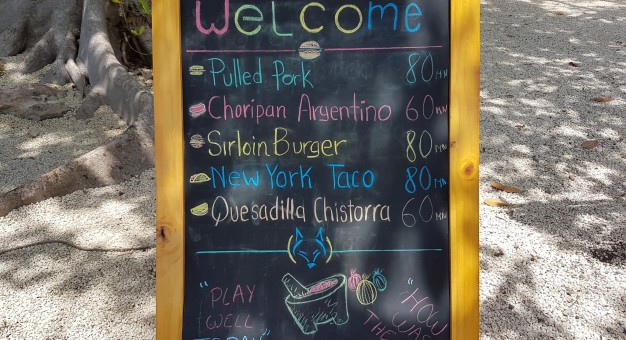 WeLCOMe
Pulled Pork 80 MN
Choripan Argentino 60 MN
Sirloin Burger 80 MN
New York Taco 80 MN
Quesadilla Chistorra 60 MN
"PLAY
WELL
TODAY"
"HOW
WAS
THE